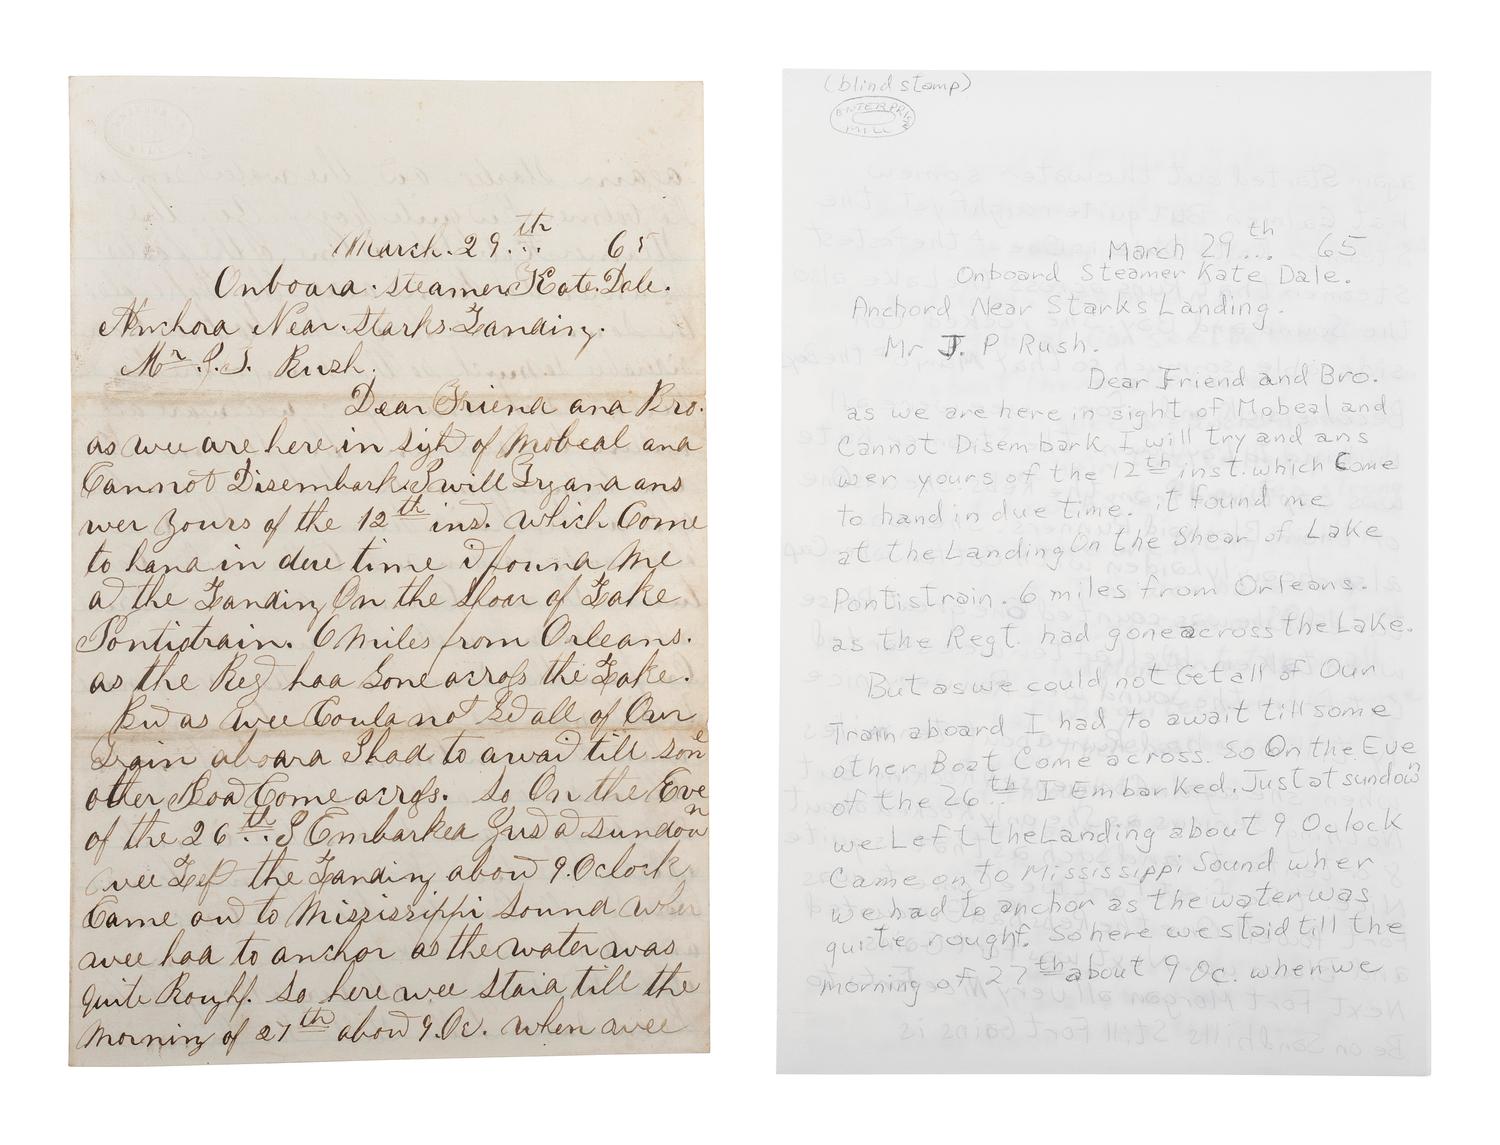 March. 29.th.. 65
Onboard. Steamer Kate. Dale.
Anchord Near. Starks. Landing.
Mr. J. P. Rush.
Dear Friend and Bro.
as wee are here in sight of Mobeal and
Cannot Disembark. I will Try and ans
wer yours of the 12th inst. which Come
to hand in due time it found me
at the Landing On the Shoar of Lake
Pontistrain. 6 miles from Orleans.
as the Regt had gone across the Lake.
But as wee Could not Get all of Our
Train aboard I had to await till some
other Boat Come across. So On the Eve
of the 26th.. I Embarked Just at sundown
wee Left the Landing about 9. Oclock
Came out to Mississippi Sound wher
wee had to anchor as the water was
quite Roughf. So here wee staid till the
morning of 27th about 9. Oc. when wee
(blind stamp)
ENTERPRISE
MILL
March 29th... 65
Onboard Steamer Kate Dale.
Anchord Near Starks Landing.
Mr J. P Rush.
Dear Friend and Bro.
as we are here in sight of Mobeal and
Cannot Disembark I will try and ans
wer yours of the 12th inst. which Come
to hand in due time. it found me
at the Landing On the Shoar of Lake
Pontistrain. 6 miles from Orleans.
as the Regt. had gone across the Lake.
But as we could not Get all of Our
Train aboard I had to await till some
other Boat Come across. So On the Eve
of the 26th.. I Embarked. Just at sundown
we Left the Landing about 9 Oclock
Came on to Mississippi Sound wher
we had to anchor as the water was
quite roughf. So here we staid till the
morning of 27th about 9 Oc. when we